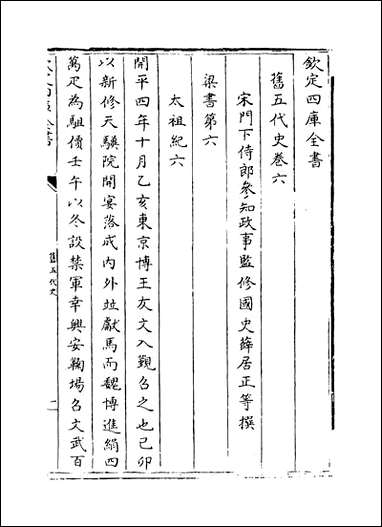 欽定四庫全書
舊五代史卷六
宋門下侍郎參知政事監修國史薛居正等撰
梁書第六
太祖紀六
開平四年十月乙亥東京博王友文入覲召之也己卯
以新修天驥院開宴落成内外竝獻馬而魏博進絹四
萬疋為駔價壬午以冬設禁軍幸興安鞠場召文武百
舊五代史
一